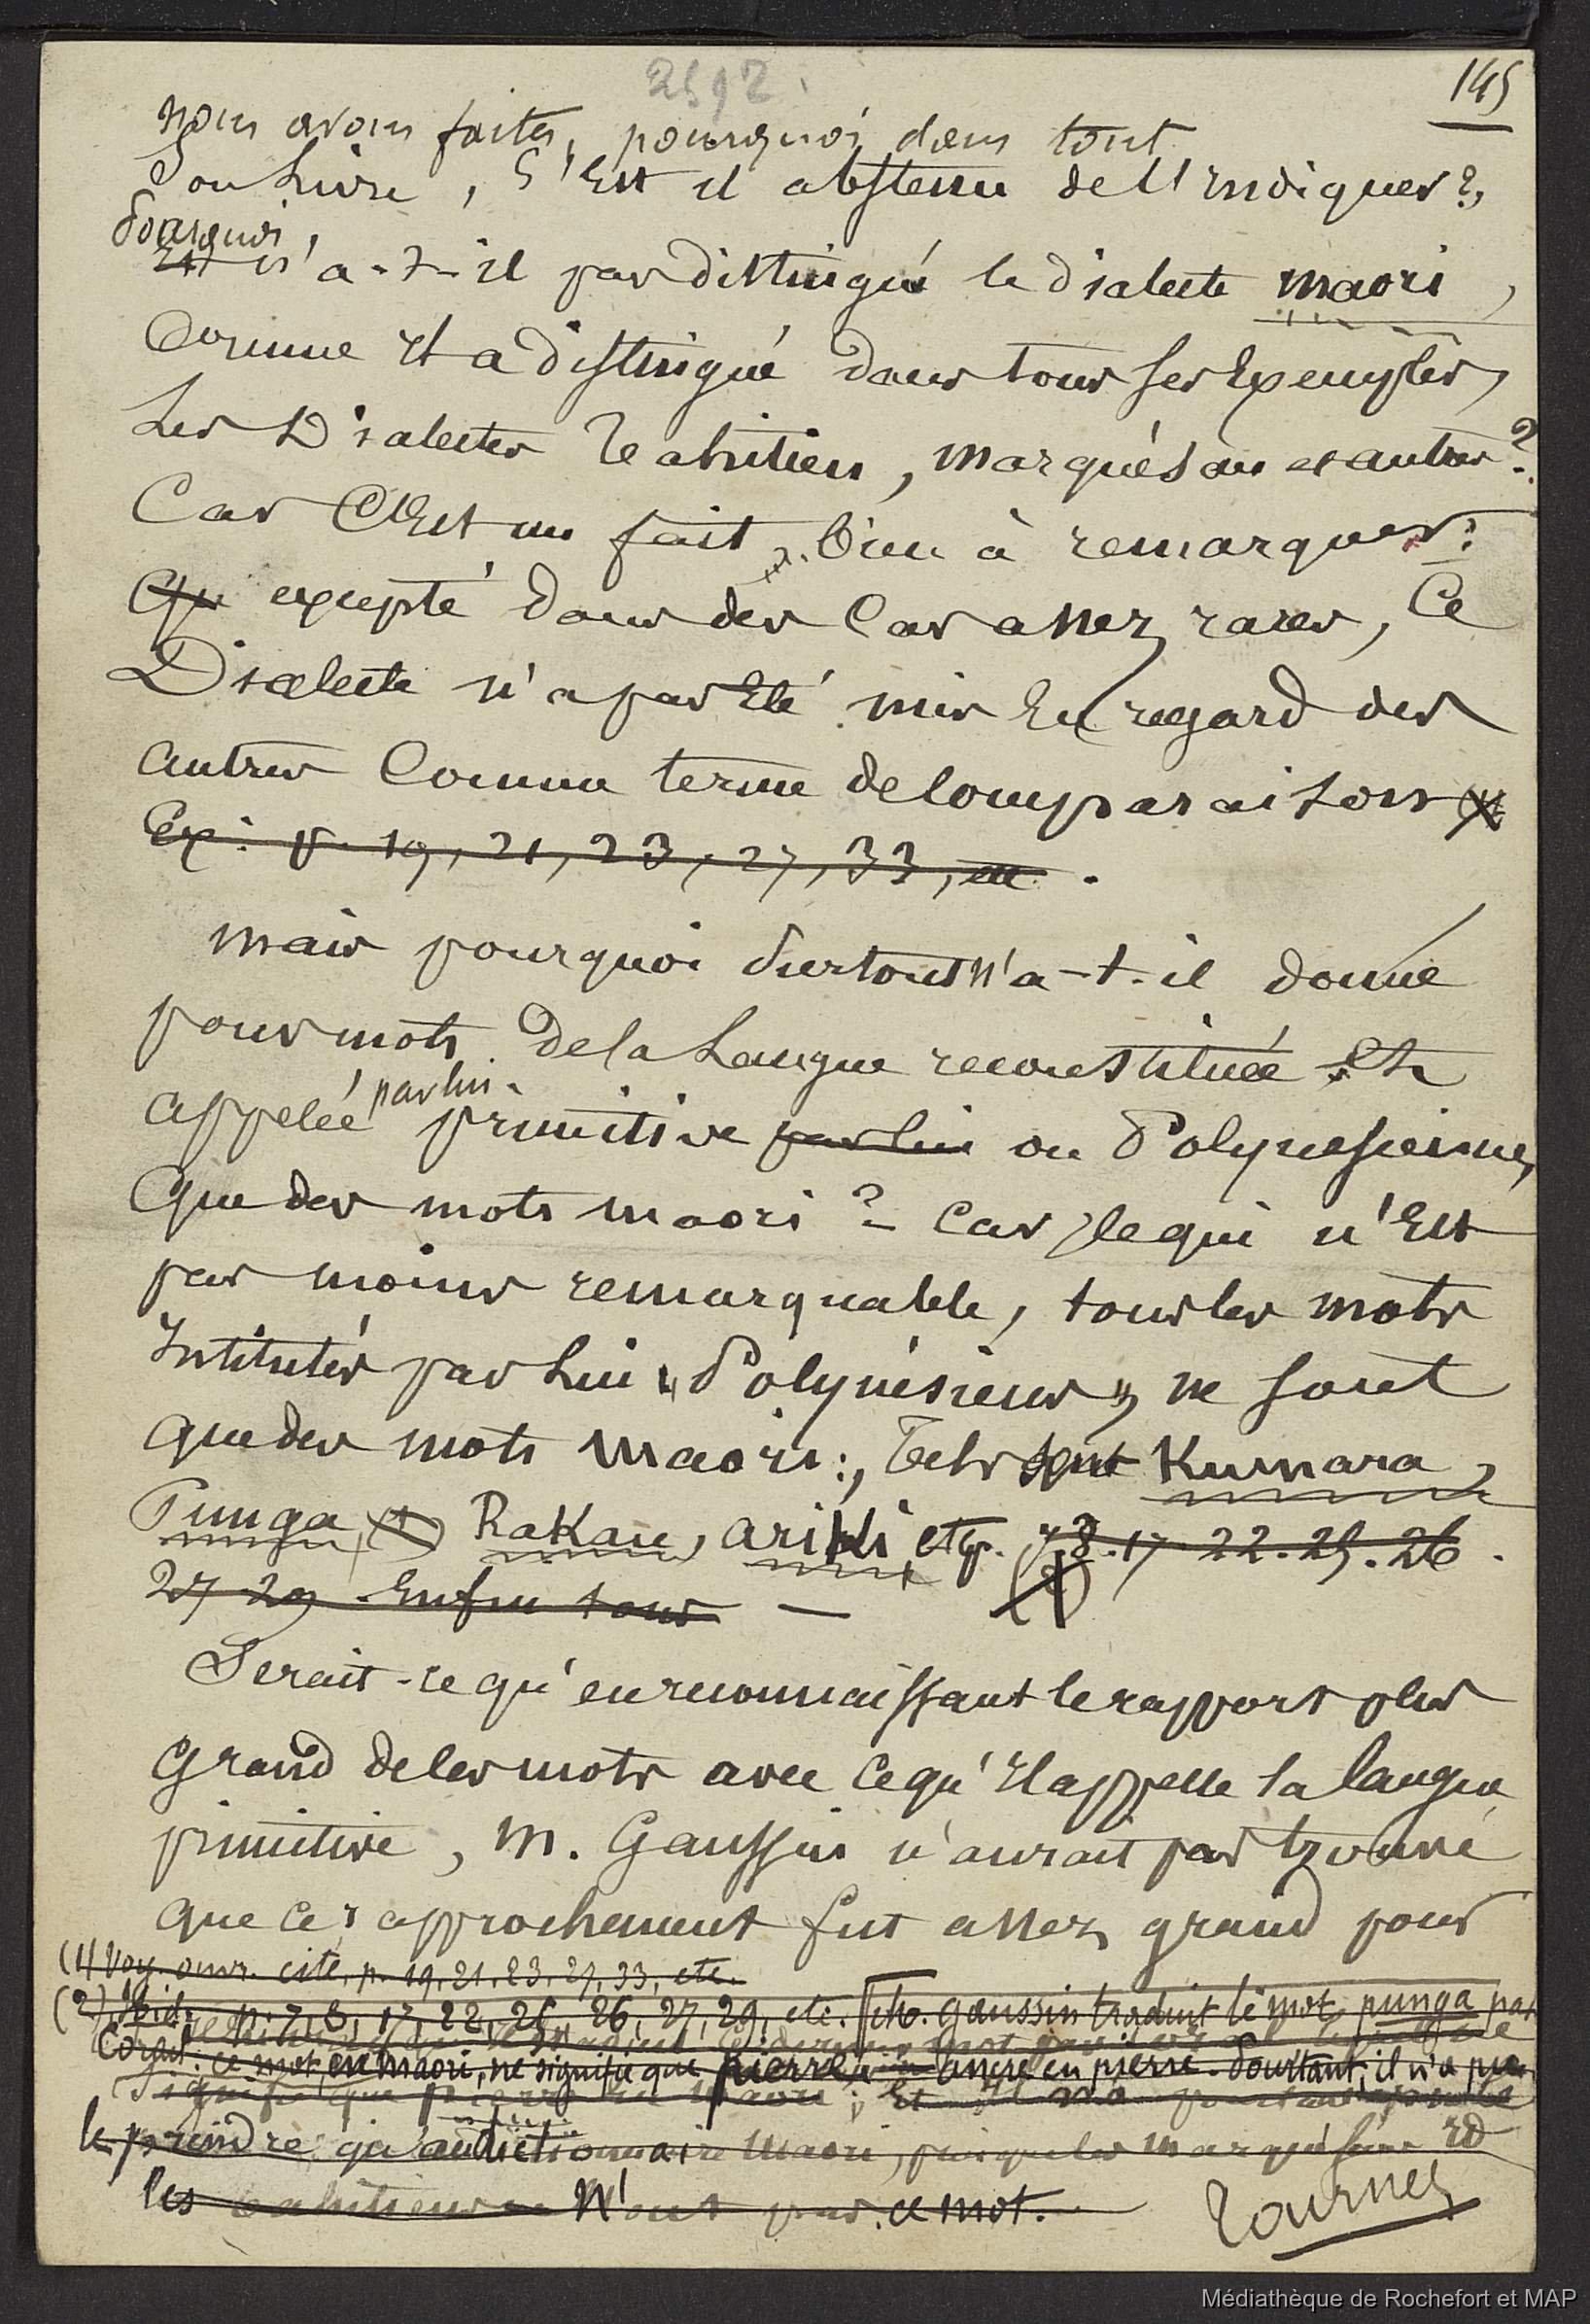 2592.
145
nous avons faites, pourquoi dans tout
Son Livre, S'Est il abstenu de l'indiquer?,
Pourquoi,
Et n'a-t-il pas distingué le dialecte maori,
Comme il a distingué dans tous ses Exemples,
Les Dialectes Tahitien, marquésan et autres?
Car C'Est un fait, bien à remarquer:
Qu' excepté dans des Cas assez rares, Ce
Dialecte n'a pas Eté mis En regard des
autres Comme terme de Comparaison
Ex: p. 19, 21, 23, 27, 33, etc.
mais pourquoi Surtout n'a-t-il donné
pour mots de la Langue reconstituée Et
appelée par lui primitive par lui ou Polynésienne,
Que des mots maori? Car, Ce qui n'Est
pas moins remarquable, tous les mots
Intitulés par Lui "Polynésiens" ne sont
Que des mots maori:, Tels sont Kumara,
Punga (1) Rakau, ariki etc p. 7.8.17.22.25.26.
27 29 Enfin tous —
Serait-ce qu'en reconnaissant le rapport plus
Grand de Ces mots avec Ce qu'Il appelle la langue
primitive, M. Gaussin n'aurait pas trouvé
que Ce rapprochement fut assez grand pour
(1) Voy. ouvr. cité, p. 19, 21, 23, 27, 33, etc.
(2) Ibid. p. 7, 8, 17, 22, 25, 26, 27, 29, etc. Mr. Gaussin traduit le mot punga par
Corail: ce mot, en maori, ne signifie que pierre, ancre en pierre. Pourtant, il n'a pu
signifie que pierre en maori; Et Il n'a pourtant pu le
le prendre qu'au dictionnaire Maori, puisque les marquésans
les tahitiens n'ont pas ce mot.
Tournez
Médiathèque de Rochefort et MAP